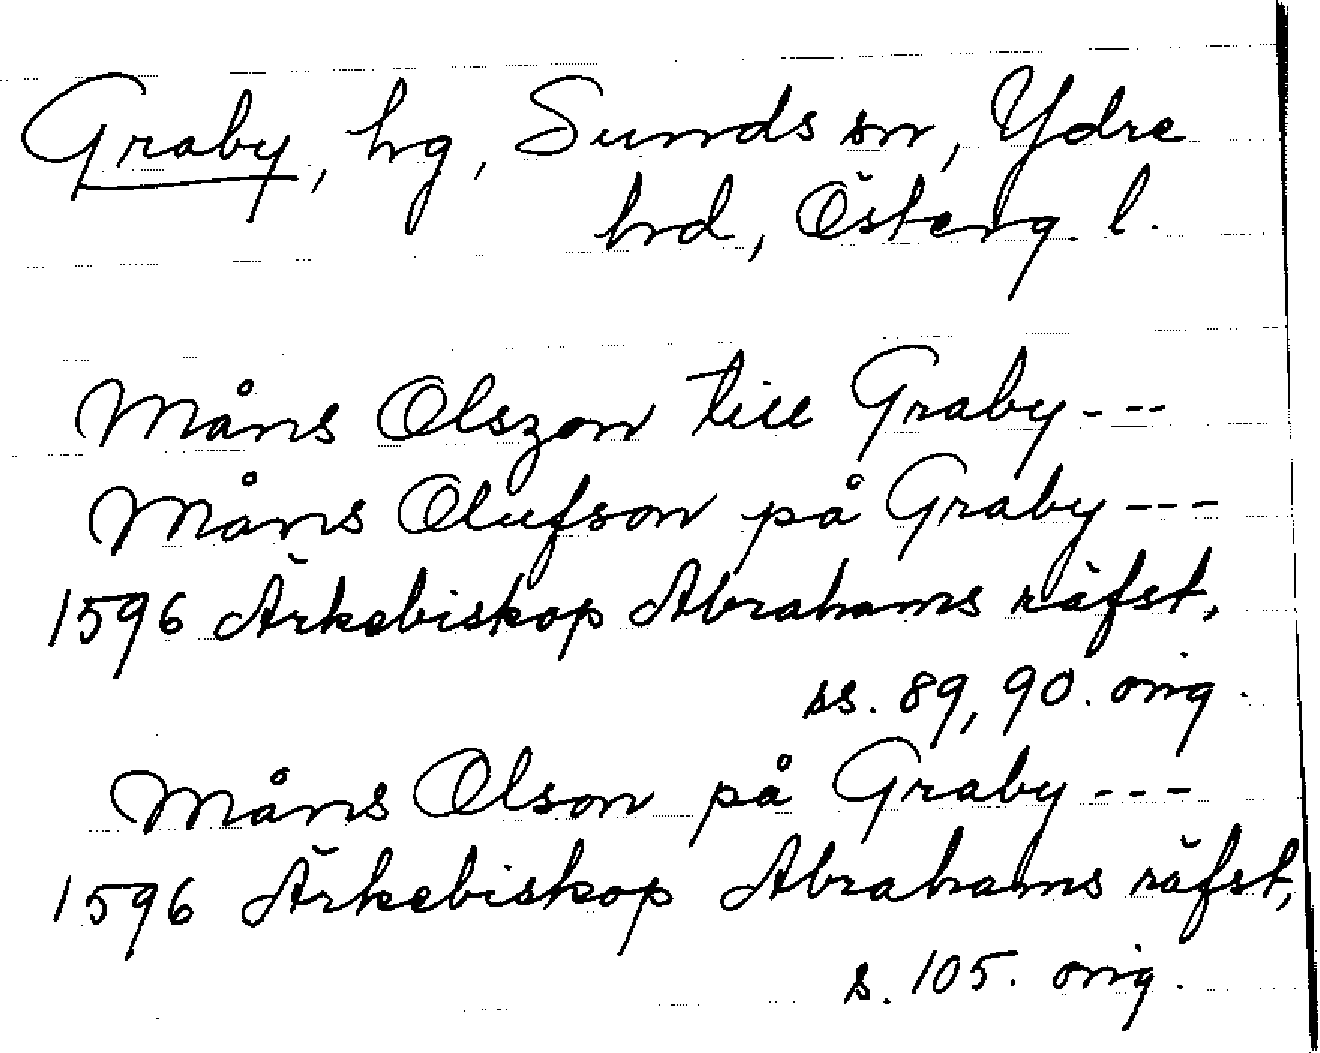 Graby, hg, Sunds sn, Ydre
hd, Österg. l.
Måns Olszon till Graby---
Måns Olufson på Graby---
1596 Ärkebiskop Abrahams räfst,
ss. 89, 90. orig.
Måns Olson på Graby---
1596 Ärkebiskop Abrahams räfst,
s. 105. orig.